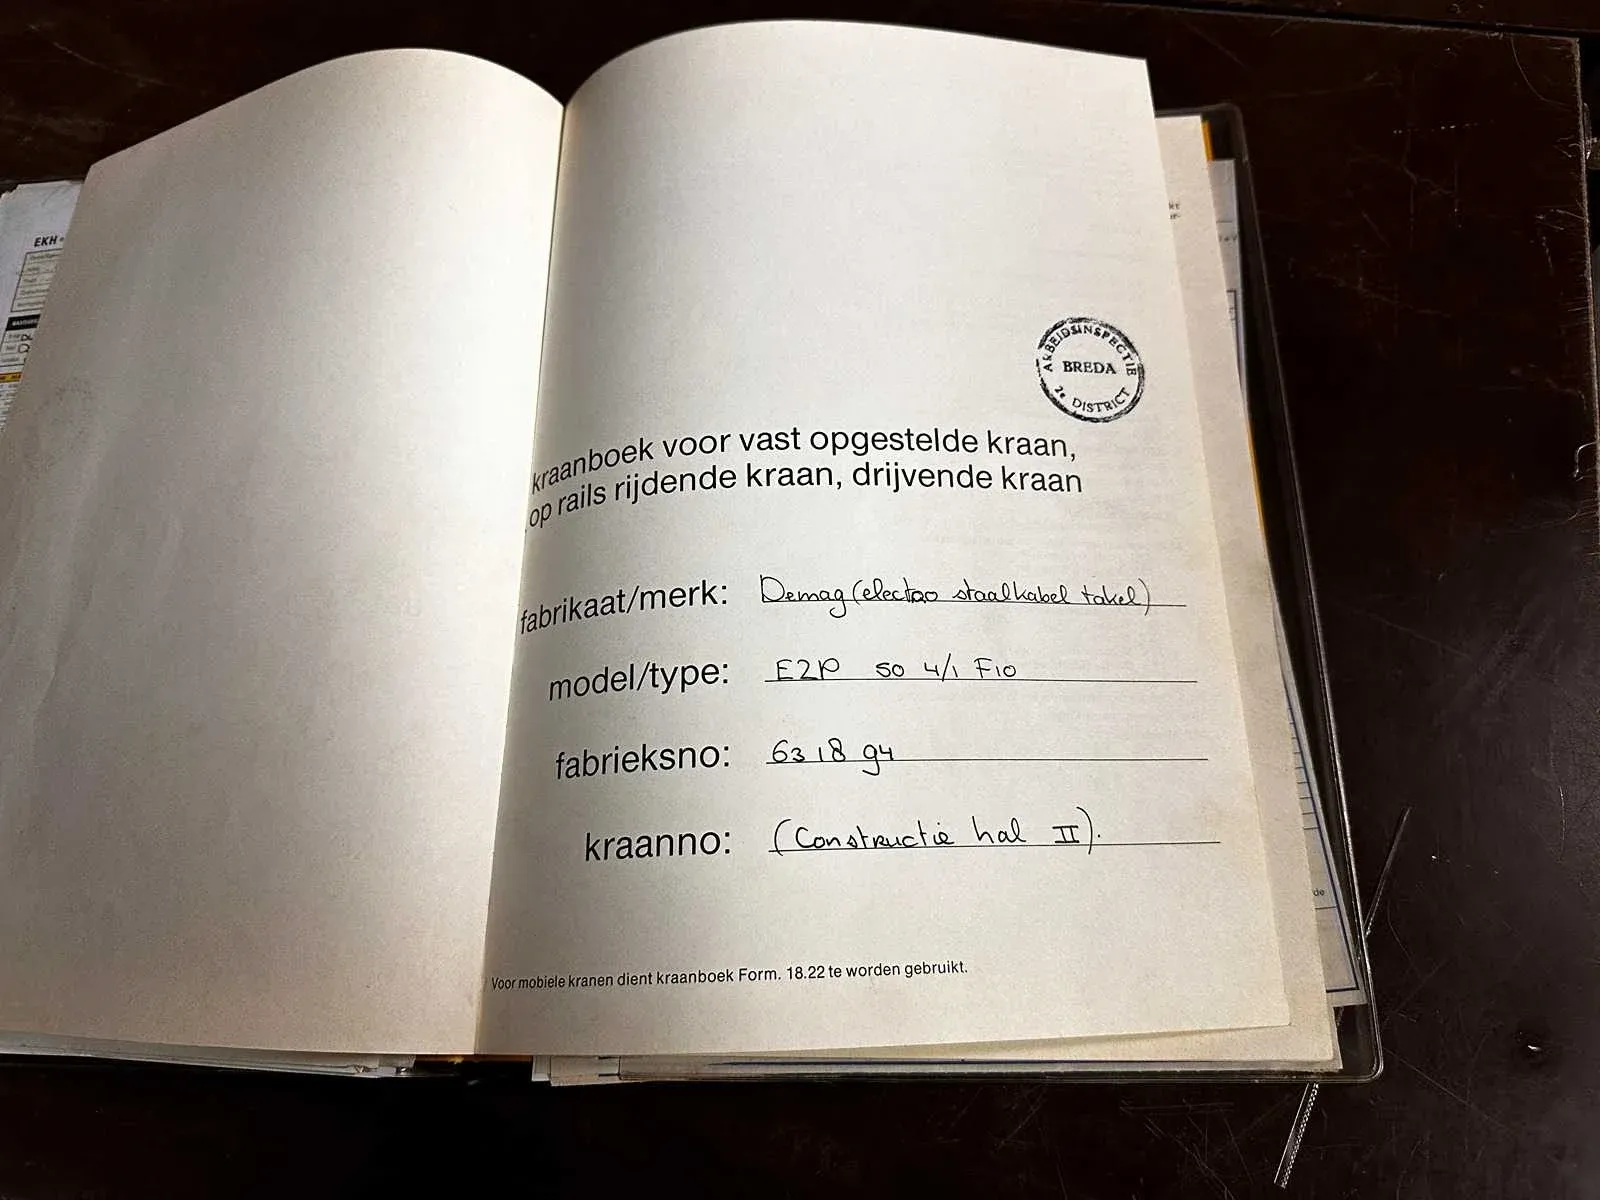 EKH
ARBEIDSINSPECTIE
BREDA
2e DISTRICT
kraanboek voor vast opgestelde kraan,
op rails rijdende kraan, drijvende kraan
fabrikaat/merk: Demag (electro staalkabel takel)
model/type: EZP 50 4/1 F10
fabrieksno: 6318 94
kraanno: (Constructie hal II).
Voor mobiele kranen dient kraanboek Form. 18.22 te worden gebruikt.
de